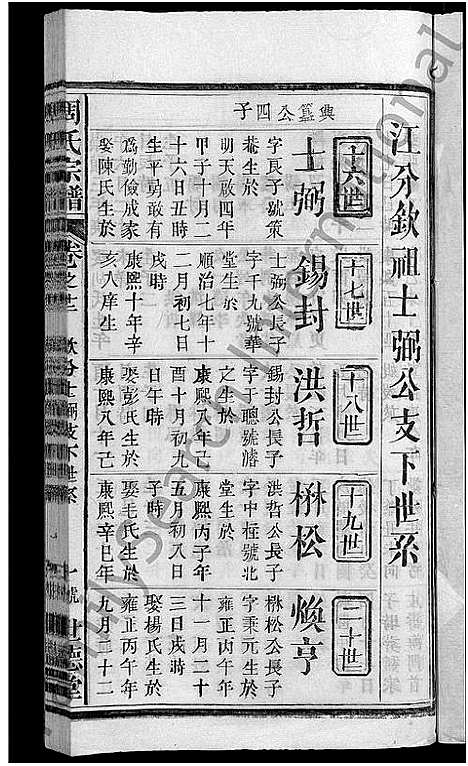 江分欽祖士弼公支下世系
十六世
興簋公四子
士弼
字良子號策
菴生於
明天啟四年
甲子十月二
十六日丑時
生平勇敢有
為勤儉成家
娶陳氏生於
十七世
錫封
士弼公長子
字千九號華
堂生於
順治七年十
二月初七日
戌時
康熙十年辛
亥八庠生
十八世
洪哲
錫封公長子
字于聰號濬
之生於
康熙八年己
酉十月初九
日午時
娶彭氏生於
康熙八年己
十九世
楙松
洪哲公長子
字中楏號北
堂生於
康熙丙子年
五月初八日
子時
娶毛氏生於
康熙辛巳年
二十世
煥亨
楙松公長子
字秉元生於
雍正丙午年
十一月二十
三日戌時
娶楊氏生於
雍正丙午年
九月二十二
周氏宗譜
世德堂
FamilySearch International